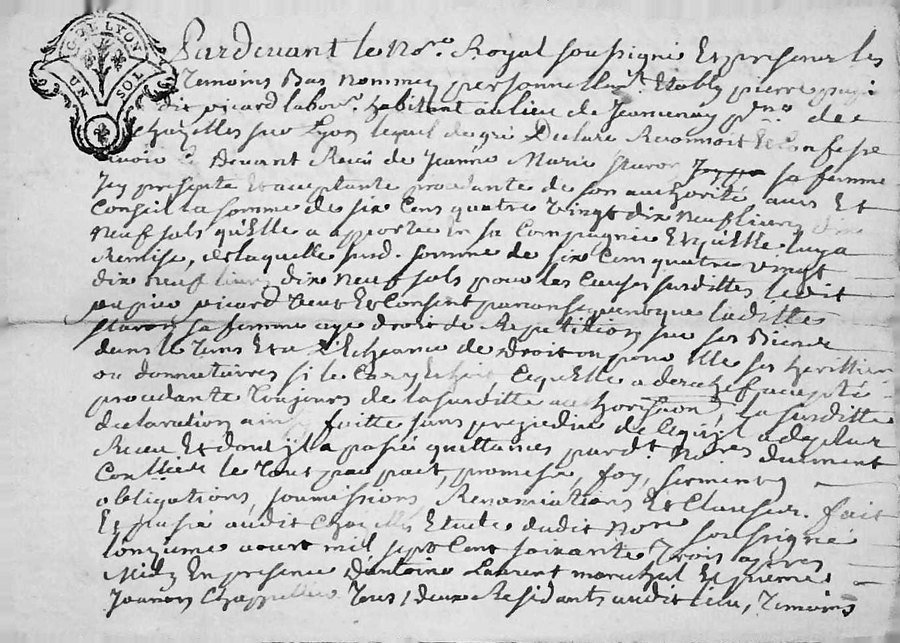 G. DE LYON
UN SOL
Pardevant le No.re Royal soussigné Et presens les
Temoins Bas nommez personnellem.t Etably pierre
dit picard labou.r habitant au lieu de p.sse de
Chazelles sur Lyon lequel de gré Declare Reconnoit Et Confesse
avoir cy Devant Receu de Jeanne Marie staron sa femme
Icy presente Et acceptante procedante de son authorité, avis Et
Conseil La somme de six Cens quatre vingt dix neuf livres dix
neuf sols qu'Elle a apporté En sa Compagnie Et qu'elle luy a
Remise, de laquelle susd. somme de six Cens quatre vingt
dix neuf livres, dix neuf sols pour les Causes susdittes ledit
picard veut Et Consent que laditte
staron sa femme aye droit de Repetition sur ses Biens
dans le Tems Et a L'Echeance de droit ou pour Elle ses heritiers
ou donnataires si le Cas y Echoit, Lequelle a derechef accepté
procedante Toujours de la susditte authorisation, La susditte
declaration ainsy faitte sans prejudice de ce qu'il a de plus
Receu Et dont il a passé quittances pardt Nores duement
Conllées le Tout par pact, promesse, foy, serments
obligations, soumissions, Renonciations Et Clauses. fait
Et passé audit Chazelles Etude dudit Nore soussigné
l'onzieme aoust mil sept Cent soixante Trois apres
Midy En presence d'antoine Laurent marechal Et pierre
Joanon Chappellier Tous deux Residants audit lieu, Temoins